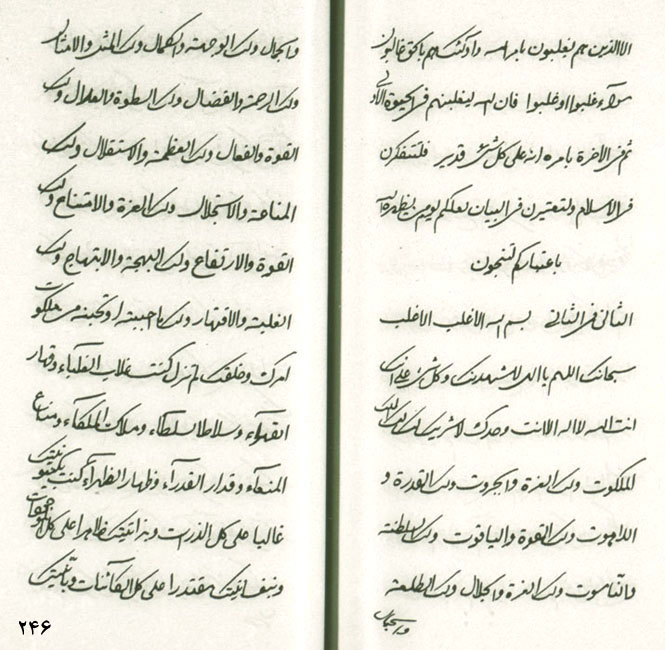 الا الذين هم يغلبون بامر الله واذ كنتم هم باكو غالبون
سواء غلبوا او غلبوا فان الله ليغلبنهم فى الحيوة الاولى
ثم فى الاخرة بامره انه على كل شىء قدير فلتتفكرن
فى الاسلام ولتعتبرن فى البيان لعلكم يوم من يظهره الله
باعتباركم لتنجون
الثانى فى الثانى بسم الله الاغلب الاغلب
سبحانك اللهم يا الهى لاشهدنك وكل شىء على انك
انت الله لا اله الا انت وحدك لا شريك لك لك الملك
والملكوت ولك العزة والجبروت ولك القدرة و
اللاهوت ولك القوة والياقوت ولك السلطنة
والناسوت ولك العزة والجلال ولك الطلعة
والجمال
والجمال ولك الوجهة والكمال ولك المثل والامثال
ولك الرحمة والفضال ولك السطوة والعدال ولك
القوة والفعال ولك العظمة والاستقلال ولك
المناعة والاستجلال ولك العزة والامتناع ولك
القوة والارتفاع ولك البهجة والابتهاج ولك
الغلبة والاقتهار ولك ما احببته او تحبنه من ملكوت
امرك وخلقك لم تزل كنت غلاب الغلباء وقهار
القهراء وسلاط السلطاء وملاك الملكاء ومناع
المنعاء وقدار القدراء وظهار الظهراء كنت بكينونيتك
غالبا على كل الذرات وبذاتيتك ظاهرا على كل الموجودات
وبنفسانيتك مقتدرا على كل الكائنات وبانيتك
۲۴۶